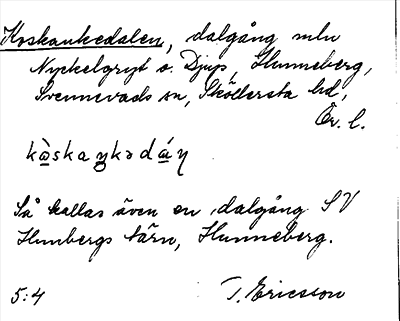 Koskankedalen, dalgång mln
Nyckelgryt o. Djup, Hunneberg,
Svennevads sn, Sköllersta hd,
Ör. l.
kȯskaŋkədáŋ
Så kallas även en dalgång SV
Hunbergs tärn, Hunneberg.
5:4 T. Ericsson